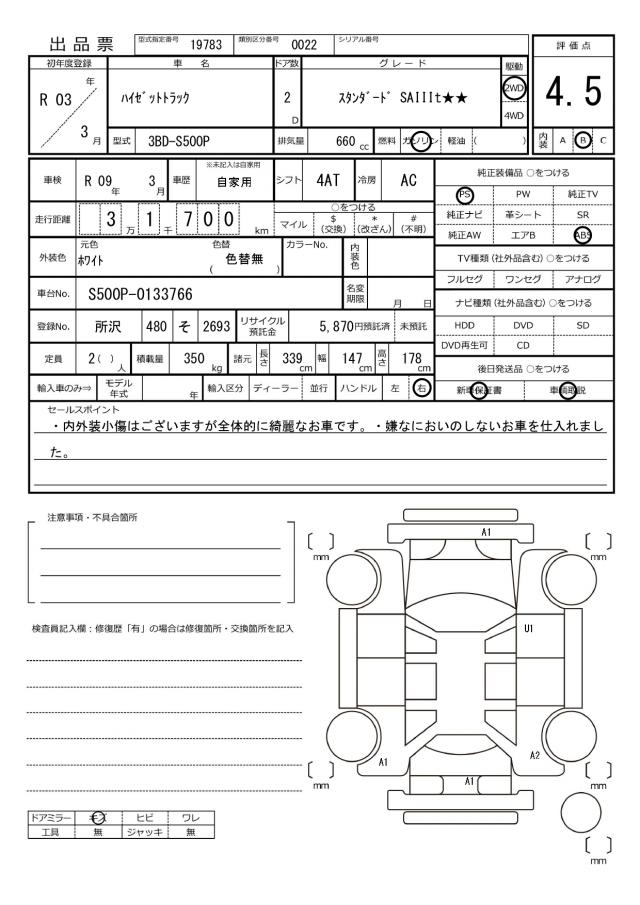 出品票
型式指定番号 19783 類別区分番号 0022 シリアル番号
評価点
4.5
内装 A B C
初年度登録 車名 ドア数 グレード 駆動
R 03 年 3 月
ハイゼットトラック
2 D
スタンダード SAIIIt★★
2WD
4WD
型式 3BD-S500P 排気量 660 cc 燃料 ガソリン 軽油 ( )
車検 R 09 年 3 月 車歴 ※未記入は自家用 自家用 シフト 4AT 冷房 AC
走行距離 3 万 1 千 7 0 0 km
○をつける
マイル $(交換) *(改ざん) #(不明)
外装色 元色 ホワイト 色替 ( 色替無 ) カラーNo. 内装色
車台No. S500P-0133766 名変期限 月 日
登録No. 所沢 480 そ 2693 リサイクル預託金 5,870円預託済 未預託
定員 2( ) 人 積載量 350 kg 諸元 長さ 339 cm 幅 147 cm 高さ 178 cm
輸入車のみ⇒ モデル年式 年 輸入区分 ディーラー 並行 ハンドル 左 右
純正装備品 ○をつける
PS PW 純正TV
純正ナビ 革シート SR
純正AW エアB ABS
TV種類(社外品含む)○をつける
フルセグ ワンセグ アナログ
ナビ種類(社外品含む)○をつける
HDD DVD SD
DVD再生可 CD
後日発送品 ○をつける
新車保証書 車輌取説
セールスポイント
・内外装小傷はございますが全体的に綺麗なお車です。・嫌なにおいのしないお車を仕入れまし
た。
注意事項・不具合箇所
検査員記入欄：修復歴「有」の場合は修復箇所・交換箇所を記入
ドアミラー キズ ヒビ ワレ
工具 無 ジャッキ 無
A1
mm
mm
U1
A1
A2
A1
mm
mm
mm